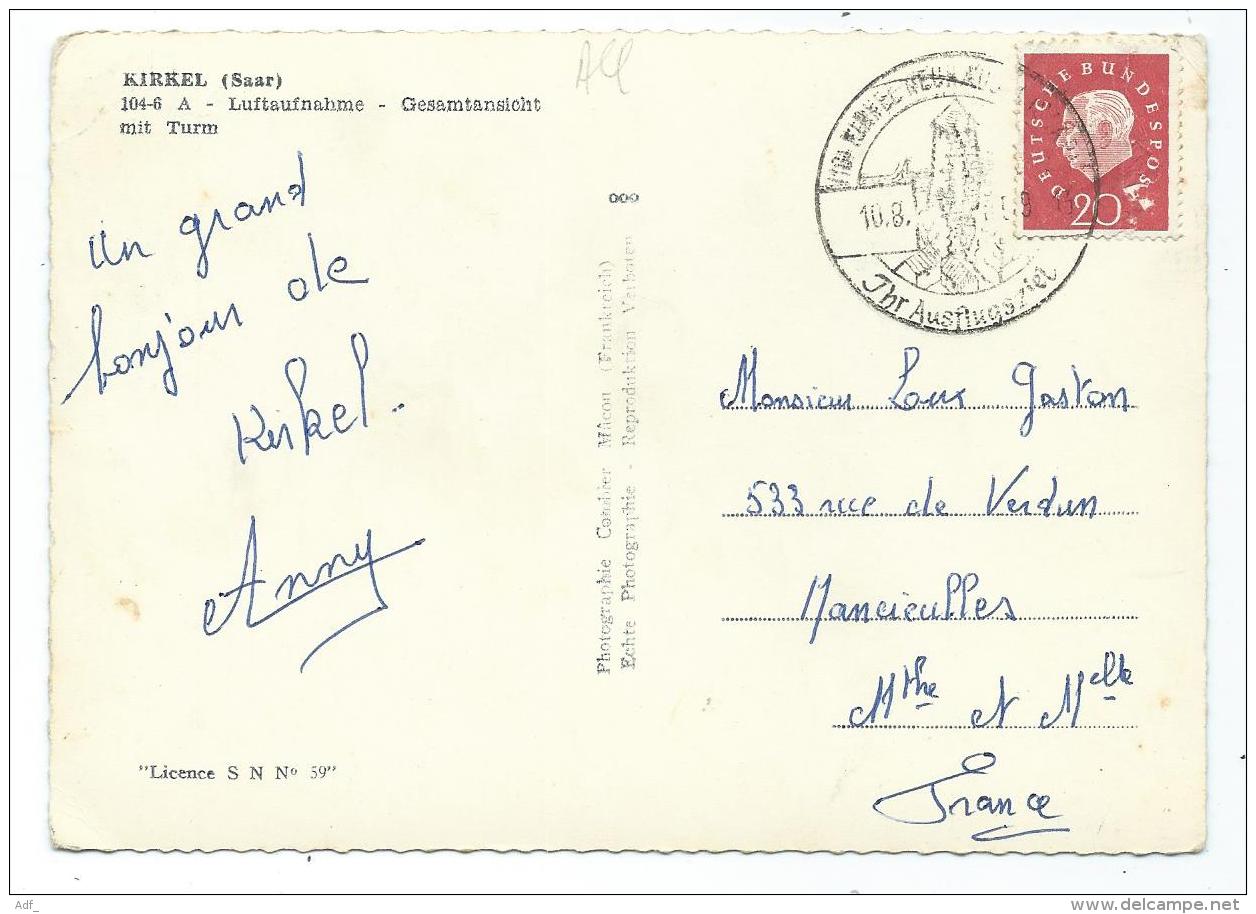 All
KIRKEL (Saar)
104-6 A - Luftaufnahme - Gesamtansicht
mit Turm
un grand
bonjour de
Kirkel.
Anny
"Licence S N Nº 59"
ooo
Photographie Combier Mâcon (Frankreich)
Echte Photographie - Reproduktion Verboten
KIRKEL NEUHÄUSEL
10.8. 59
Ihr Ausflugsziel
DEUTSCHE BUNDESPOST
20
Monsieur Loux Gaston
533 rue de Verdun
Mancieulles
Mthe et Melle
France
Adf_
delcampe.net